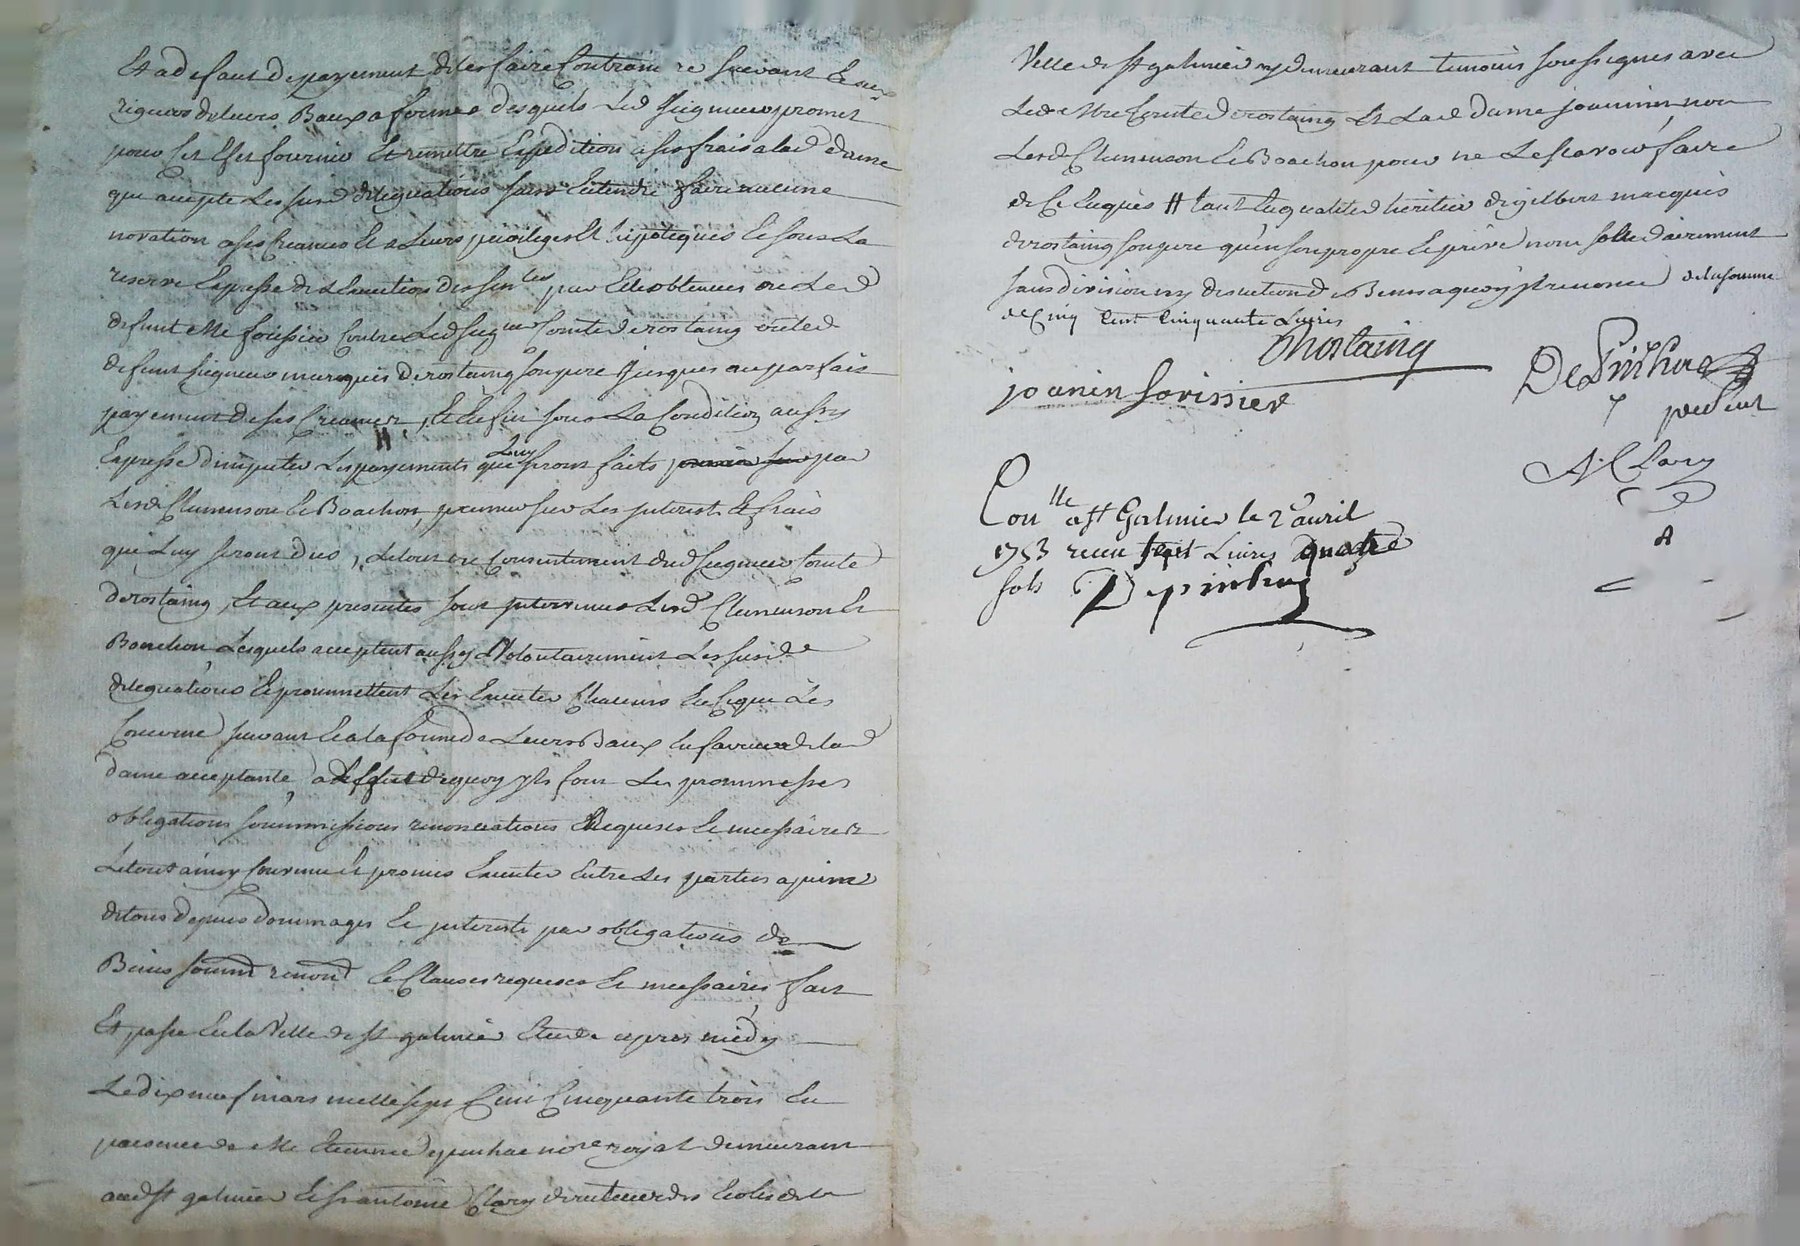 Et a defaut de payement de les faire Contraindre suivant Et aux
rigueurs de leurs Baux a ferme desquels Led Seigneur promet
pour Cet Effet fournir Et remettre Expedition a ses frais a lad dame
qui accepte Les susd deleguations sans Entendre faire aucune
novation a ses Creances Et a Leurs privileges Et hipoteques Et sous La
reserve Expresse de L'Execution des sentces par Elle obtenues ou Led
defunt Me forissier Contre Led Seigneur Comte de rostaing ou led
defunt Seigneur marquis de rostaing son pere jusques au parfait
payement de ses Creances, Et Enfin sous La Condition aussy
Expresse d'imputer Les payements que Luy seront faits par
Lesd Clemenson Et Boachon, premier sur Les Interest Et frais
que Luy seront dus, Le tout du Consentement dud Seigneur Comte
de rostaing, Et aux presentes sont Intervenus Lesd Clemenson Et
Boachon Lesquels acceptent aussy Volontairement Les susd
deleguations Et promettent Les Executer Chacuns En Ce qui Les
Concerne suivant Et a la forme de Leurs Baux En faveur de lad
dame acceptante, a deffaut de quoy yls font Les prommesses
obligations soummissions renonciations Requises Et necessaires
Le tout ainsy Convenu Et promis Executer Entre Les parties a peine
de tous depens dommages Et Interests par obligations de
Biens soumd renond Et Clauses requises Et necessaires, fait
Et passé En la Ville de st galmier Etude apres midy
Le dix neuf mars mille sept Cent Cinquante trois En
presence de Me Etienne depinhac nore royal demeurant
aud st galmier Et sr antoine Clary directeur des Ecoles de la
Ville de st galmier y demeurant temoins soussignés avec
Led Mre Comte de rostaing Et Lad dame joannin non
Lesd Clemenson Et Boachon pour ne Le scavoir faire
de Ce Enquis # tant En qualité d'heritier de gilbert marquis
de rostaing son pere qu'en son propre Et privé nom solidairement
sans division ny discution de Biens a quoy yl renonce de la somme
de Cinq Cent Cinquante Livres
Rostaing
joanin forissier
Depinhac
present
A. Clary
Conlle a st Galmier le 2e avril
1753 receu sept Livres quatre
sols Depinhac